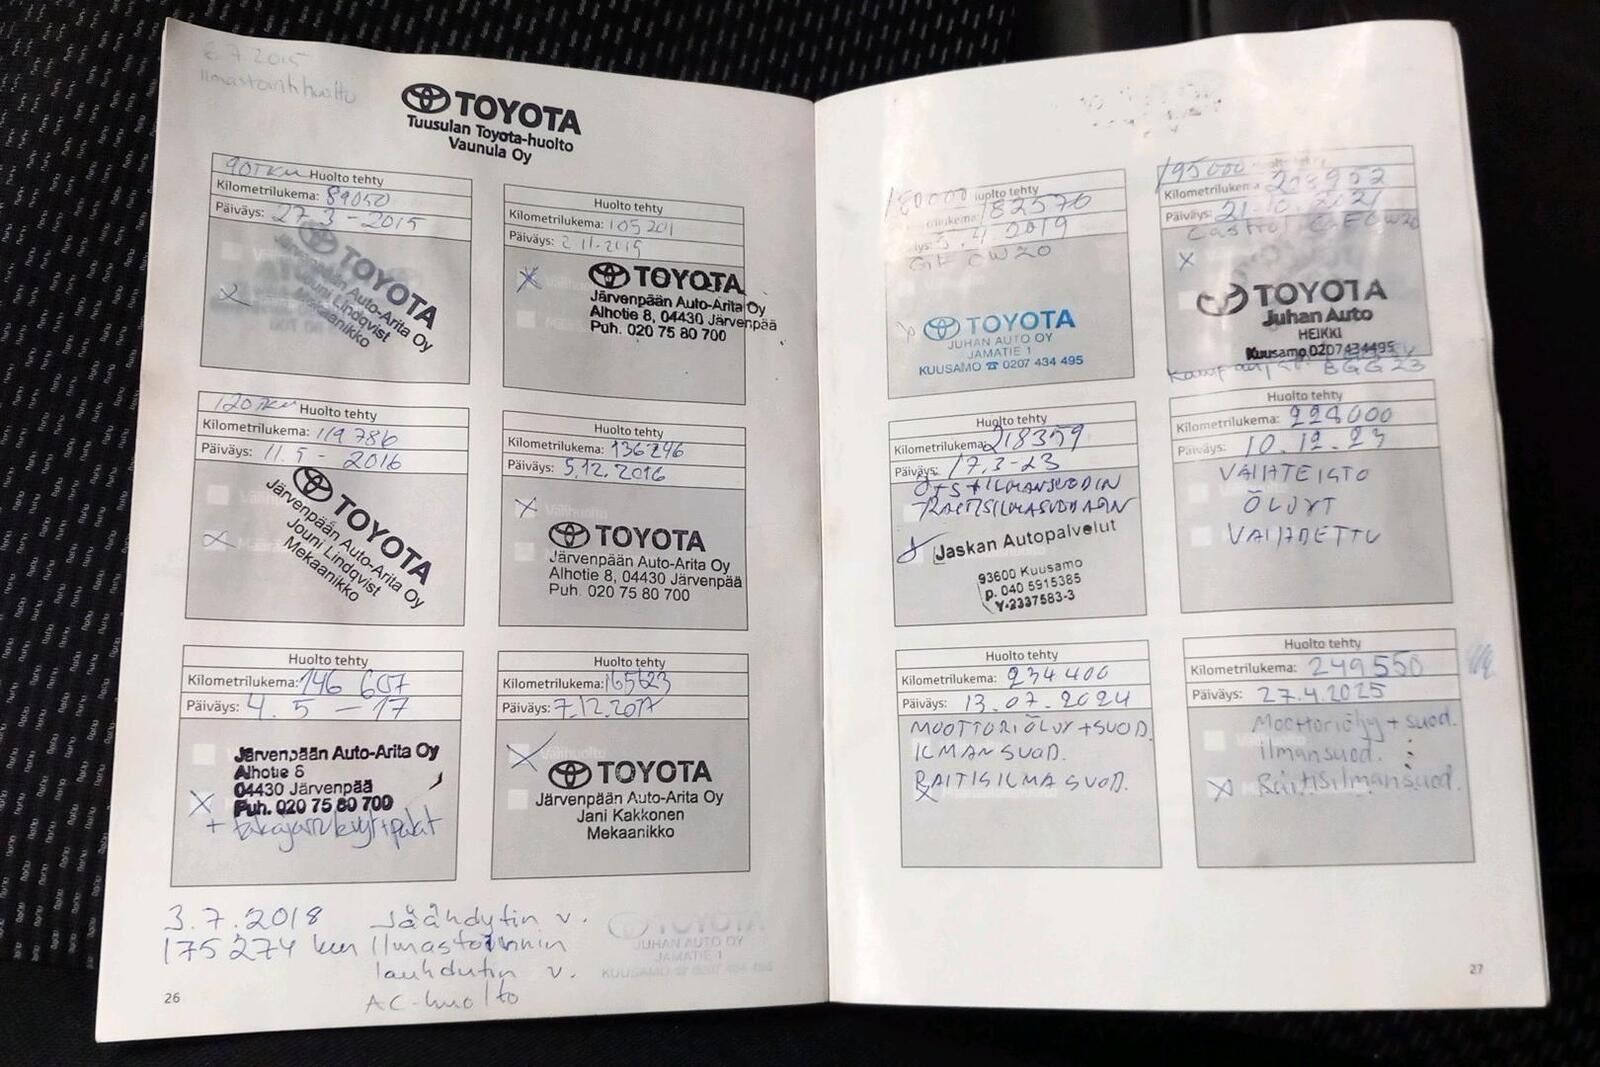 6.7.2015
Ilmastointihuolto
TOYOTA
Tuusulan Toyota-huolto
Vaunula Oy
90TKM Huolto tehty
Kilometrilukema: 89050
Päiväys: 27-3-2015
TOYOTA
Järvenpään Auto-Arita Oy
Jouni Lindqvist
Mekaanikko
Huolto tehty
Kilometrilukema: 105201
Päiväys: 2.11.2015
TOYOTA
Järvenpään Auto-Arita Oy
Alhotie 8, 04430 Järvenpää
Puh. 020 75 80 700
120TKM Huolto tehty
Kilometrilukema: 119786
Päiväys: 11.5-2016
TOYOTA
Järvenpään Auto-Arita Oy
Jouni Lindqvist
Mekaanikko
Huolto tehty
Kilometrilukema: 136246
Päiväys: 5.12.2016
TOYOTA
Järvenpään Auto-Arita Oy
Alhotie 8, 04430 Järvenpää
Puh. 020 75 80 700
Huolto tehty
Kilometrilukema: 146 607
Päiväys: 4.5-17
Järvenpään Auto-Arita Oy
Alhotie 8
04430 Järvenpää
Puh. 020 75 80 700
+ takajarrulevyt+palat
Huolto tehty
Kilometrilukema: 165623
Päiväys: 7.12.2017
Välihuolto
TOYOTA
Järvenpään Auto-Arita Oy
Jani Kakkonen
Mekaanikko
3.7.2018 Jäähdytin v.
175274 km Ilmastoinnin
lauhdutin v.
AC-huolto
TOYOTA
JUHAN AUTO OY
JAMATIE 1
KUUSAMO ☎ 0207 434 495
26
180000 uolto tehty
ilukema: 182570
iys: 5.4.2019
0W20
TOYOTA
JUHAN AUTO OY
JAMATIE 1
KUUSAMO ☎ 0207 434 495
195000
Kilometrilukema
Päiväys: 21.10.2021
Castrol 0W20
TOYOTA
Juhan Auto
HEIKKI
Kuusamo 0207434495
Huolto tehty
Kilometrilukema: 218359
Päiväys: 17.3-23
Ö+S+ILMANSUODIN
RAITISILMASUODATIN
Jaskan Autopalvelut
93600 Kuusamo
p. 040 5915385
Y-2337583-3
Huolto tehty
Kilometrilukema: 228000
Päiväys: 10.12.23
VAIHTEISTO
ÖLJYT
VAIHDETTU
Huolto tehty
Kilometrilukema: 234400
Päiväys: 13.07.2024
MOOTTORIÖLJY+SUOD.
ILMANSUOD.
RAITISILMASUOD.
Huolto tehty
Kilometrilukema: 249550
Päiväys: 27.4.2025
Moottoriöljy + suod.
ilmansuod.
Raitisilmansuod.
27